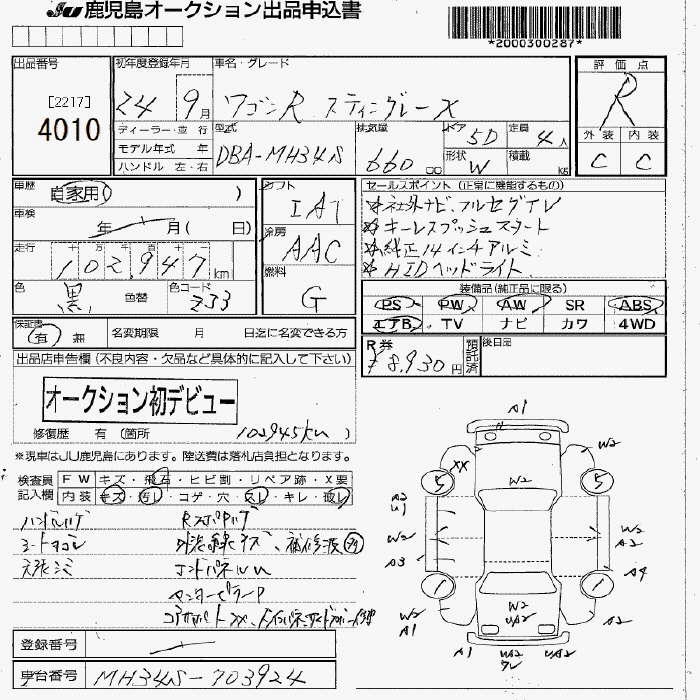 JU 鹿児島オークション出品申込書
*2000300287*
出品番号
[2217]
4010
初年度登録年月
24 9月
車名・グレード
ワゴンR スティングレーX
ディーラー・並行
モデル年式 年
ハンドル 左・右
型式
DBA-MH34S
排気量
660 cc
ドア 5D
定員 4人
形状 W
積載 kg
評価点
R
外装 内装
C C
車歴 自家用( )
車検 年 月( 日)
走行 十万千百十一
102,947 km
色 黒 色替
色コード Z33
シフト IAT
冷房 AAC
燃料 G
セールスポイント (正常に機能するもの)
☆社外ナビ、フルセグTV
☆キーレスプッシュスタート
☆純正14インチアルミ
☆HIDヘッドライト
装備品(純正品に限る)
PS PW AW SR ABS
エアB TV ナビ カワ 4WD
保証書
有 無
名変期限 月 日迄に名変できる方
R券
¥8,930円
預託済
後日品
出品店申告欄(不良内容・欠品など具体的に記入して下さい)
オークション初デビュー
修復歴 有 (箇所 102945km )
※現車はJU鹿児島にあります。陸送費は落札店負担となります。
検査員記入欄
FW キズ・飛石・ヒビ割・リペア跡・X要
内装 キズ・汚レ・コゲ・穴・スレ・キレ・破レ
ハンドルハゲ
シートヨゴレ
天張シミ
A1
XX
W2
5
5
W2
A2
U1
W2
A3
W2
A2
A4
1
1
W2
A1
W2
UA2
A2
A1
UA2
クレ
UA2
A1
登録番号
車台番号 MH34S-703924